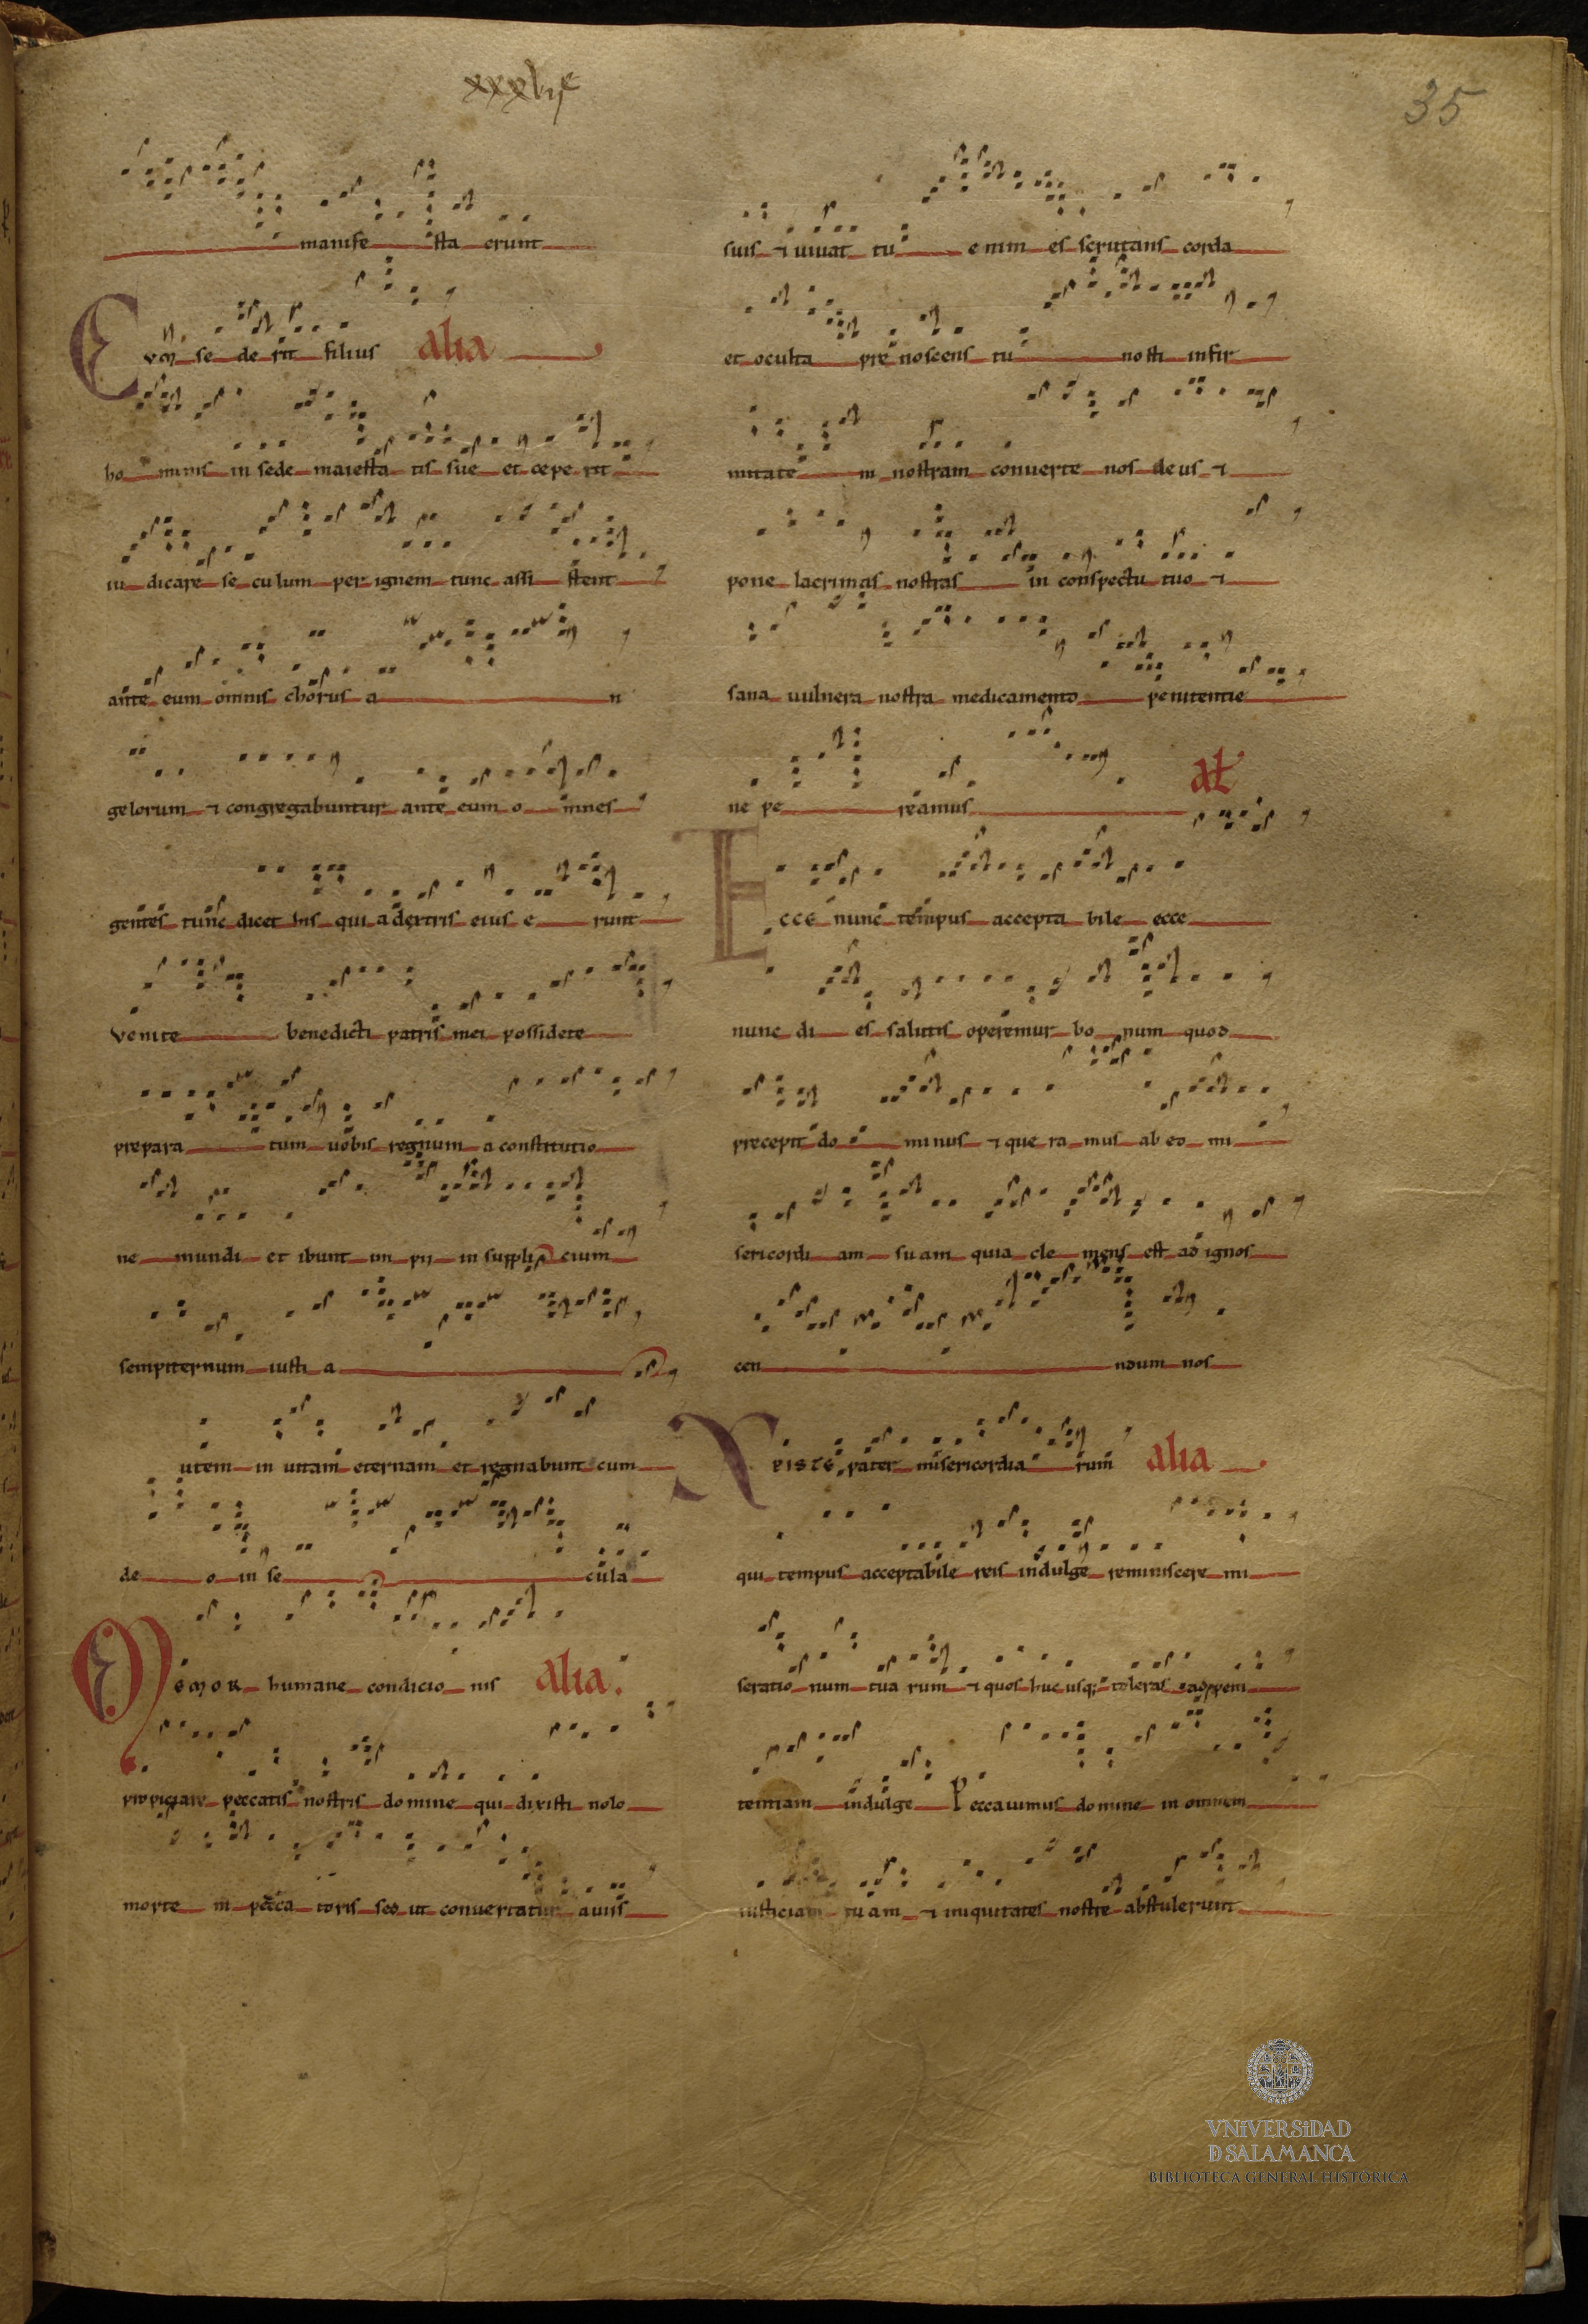 35
manife sta erunt
Cvm se de rit filius alia
ho minis in sede maiesta tis sue et cepe rit
iu dicare se culum per ignem tunc assi stent
ante eum omnis chorus a n
gelorum ⁊ congregabuntur ante eum o mnes
gentes tunc dicet his qui a dextris eius e runt
venite benedicti patris mei possidete
prepara tum uobis regnum a constitutio
ne mundi et ibunt im pii in suppli cium
sempiternum iusti a
utem in uitam eternam et regnabunt cum
de o in se cula
Memor humane condicio nis alia.
propiciare peccatis nostris domine qui dixisti nolo
morte m pecca toris sed ut convertatur a uiis
suis ⁊ uiuat tu enim es scrutans corda
et oculta pre noscens tu nosti infir
mitate m nostram conuerte nos deus ⁊
pone lacrimas nostras in conspectu tuo ⁊
sana uulnera nostra medicamento penitentie
ne pe reamus at
Ecce nunc tempus accepta bile ecce
nunc di es salutis operemur bo num quod
precepit do minus ⁊ que ra mus ab eo mi
sericordi am suam quia cle mens est ad ignos
cen dum nos
Xpiste pater misericordia rum alia
qui tempus acceptabile reis indulge reminiscere mi
seratio num tua rum ⁊ quos huc usq; toleras ad peni
tentiam indulge Peccauimus domine in omnem
iusticiam tuam ⁊ iniquitates nostre abstulerunt
VNiVERSiDAD
D SALAMANCA
BIBLIOTECA GENERAL HISTÓRICA